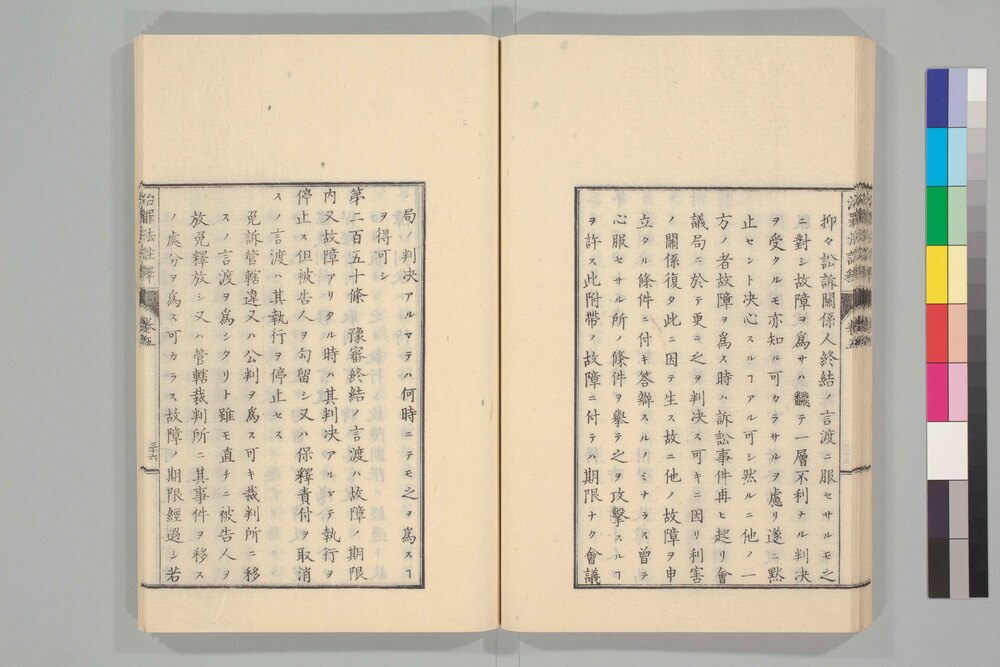 抑々訟訴關係人終結ノ言渡ニ服セサルモ之
ニ對シ故障ヲ爲サハ飜テ一層不利ナル判決
ヲ受クルモ亦知ル可カラサルヲ慮リ遂ニ黙
止セント決心スルヿアル可シ然ルニ他ノ一
方ノ者故障ヲ爲ス時ハ訴訟事件再ヒ起リ會
議局ニ於テ更ニ之ヲ判決ス可キニ因リ利害
ノ關係復タ此ニ因テ生ス故ニ他ノ故障ヲ申
立タル條件ニ付キ答辯スルノミナラス曾テ
心服セサル所ノ條件ヲ擧テ之ヲ攻擊スルヿ
ヲ許ス此附帶ノ故障ニ付テハ期限ナク會議
治罪法註釋
卷五
三十六
局ノ判決アルマテハ何時ニテモ之ヲ爲スヿ
ヲ得可シ
第二百五十條 豫審終結ノ言渡ハ故障ノ期限
内又故障アリタル時ハ其判决アルマテ執行ヲ
停止ス但被告人ヲ勾留シ又ハ保釋責付ヲ取消
スノ言渡ハ其執行ヲ停止セス
免訴管轄違又ハ公判ヲ爲ス可キ裁判所ニ移
スノ言渡ヲ爲シタリト雖モ直チニ被告人ヲ
放免釋放シ又ハ管轄裁判所ニ其事件ヲ移ス
ノ處分ヲ爲ス可カラス故障ノ期限經過シ若